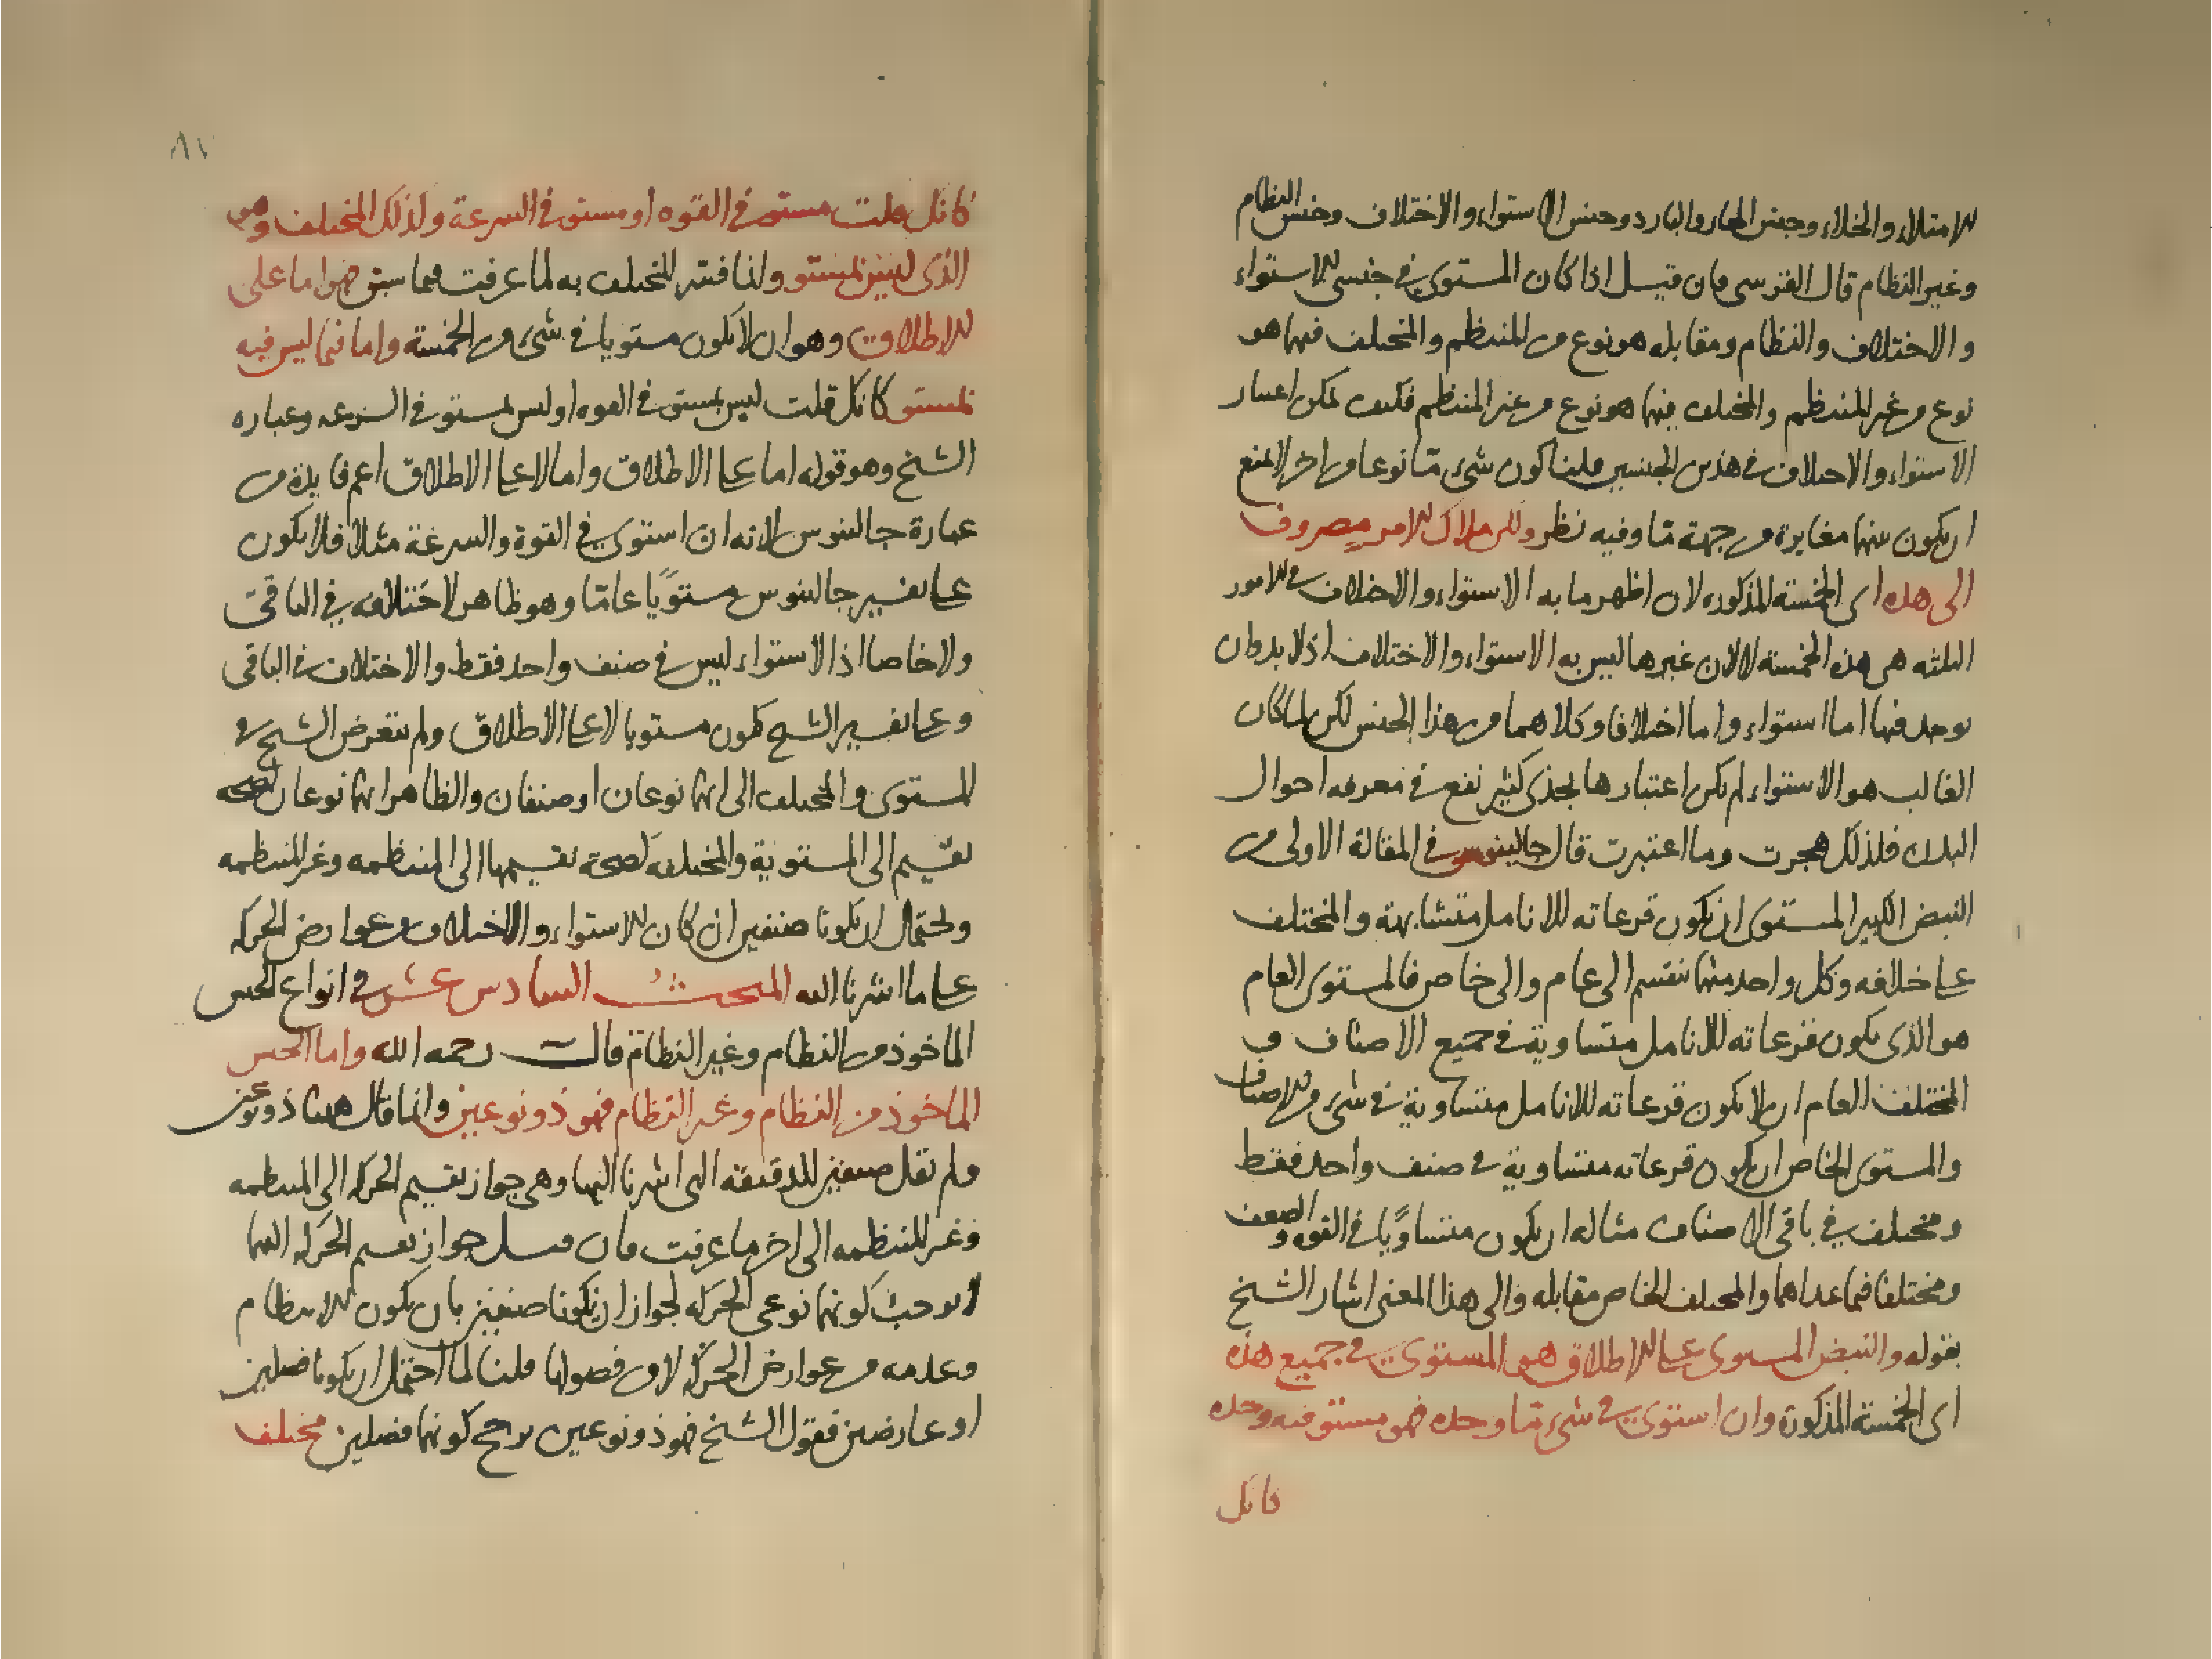 الامتلاء والخلاء وجنس الحار والبارد وجنس الاستواء والاختلاف وجنس النظام
وغير النظام قال القرسى فان قيل اذا كان المستوى فى جنسى الاستواء
والاختلاف والنظام ومقابله هو نوع من المنتظم والمختلف فيها هو
نوع من غير المنتظم والمختلف فيها هو نوع من غير المنتظم فكيف يمكن اعتبار
الاستواء والاختلاف فى هذين الجنسين قلنا كون شىء ما نوعا من اخر لا يمنع
ان يكون بينهما مغايرة من جهة ما وفيه نظر ولكن ملاك الامر مصروف
الى هذه اى الخمسة المذكوره لان اظهر ما به الاستواء والاختلاف فى الامور
الثلثه هى هذه الخمسة لا لان غيرها ليس به الاستواء والاختلاف اذ لا بد وان
يوجد فيها اما استواء واما اختلافا وكلاهما من هذا الجنس لكن لما كان
الغالب هو الاستواء لم يكن اعتبارها بجذى كثير نفع فى معرفه احوال
البدن فلذلك هجرت وما اعتبرت قال جالينوس فى المقالة الاولى من
النبض الكبير المستوى ان يكون قرعاته للانامل متشابهة والمختلف
على خلافه وكل واحد منهما ينقسم الى عام والى خاص فالمستوى العام
هو الذى يكون قرعاته للانامل متساوية فى جميع الاصناف و
المختلف العام ان لا يكون قرعاته للانامل متساوية فى شىء من الاصناف
والمستوى الخاص ان يكون قرعاته متساوية فى صنف واحد فقط
ومختلف فى باقى الاصناف مثاله ان يكون متساويا فى القوه والضعف
ومختلفا فيما عداهما والمختلف الخاص مقابله والى هذا المعنى اشار الشيخ
بقوله والنبض المستوى على الاطلاق هو المستوى فى جميع هذه
اى الخمسة المذكورة وان استوى فى شىء ما وحده فهو مستو فيه وحده
كانك
٨٧
كانك قلت مستو فى القوه او مستو فى السرعة وكذلك المختلف وهو
الذى ليس بمستو ولنا فسر المختلف به لما عرفت مما سبق فهو اما على
الاطلاق وهو ان لا يكون مستويا فى شىء من الخمسة واما فيما ليس فيه
بمستو كانك قلت ليس بمستو فى القوه او ليس بمستو فى السرعه وعباره
الشيخ وهو قوله اما على الاطلاق واما لا على الاطلاق اعم فايدة من
عبارة جالينوس لانه ان استوى فى القوة والسرعة مثلا فلا يكون
على تفسير جالينوس مستويا عاما وهو ظاهر لاختلافه فى الباقى
ولا خاصا اذ الاستواء ليس فى صنف واحد فقط والاختلاف فى الباقى
وعلى تفسير الشيخ يكون مستويا لا على الاطلاق ولم يتعرض الشيخ فى
المستوى والمختلف الى انهما نوعان او صنفان والظاهر انهما نوعان لصحة
تقسيم الى المستوية والمختلفه لصحة تقسيمها الى المنتظمه وغير المنتظمه
ويحتمل ان يكونا صنفين ان كان الاستواء والاختلاف من عوارض الحركه
على ما اشرنا اليه المبحث السادس عشر فى انواع الجنس
الماخوذ من النظام وغير النظام قال رحمه الله واما الجنس
الماخوذ من النظام وغير النظام فهو ذو نوعين وانما قال هنا ذو نوعين
ولم يقل صنفين للدقيقه التى اشرنا اليها وهى جواز تقسيم الحركه الى المنتظمه
وغير المنتظمه الى اخر ما عرفت فان قيل جواز تقسيم الحركه اليهما
لا يوجب كونهما نوعى الحركه لجواز ان يكونا صنفين بان يكون الانتظام
وعدمه من عوارض الحركه لا من فصولها قلنا لما احتمل ان يكونا فصلين
او عارضين فقول الشيخ فهو ذو نوعين يرجح كونهما فصلين مختلف